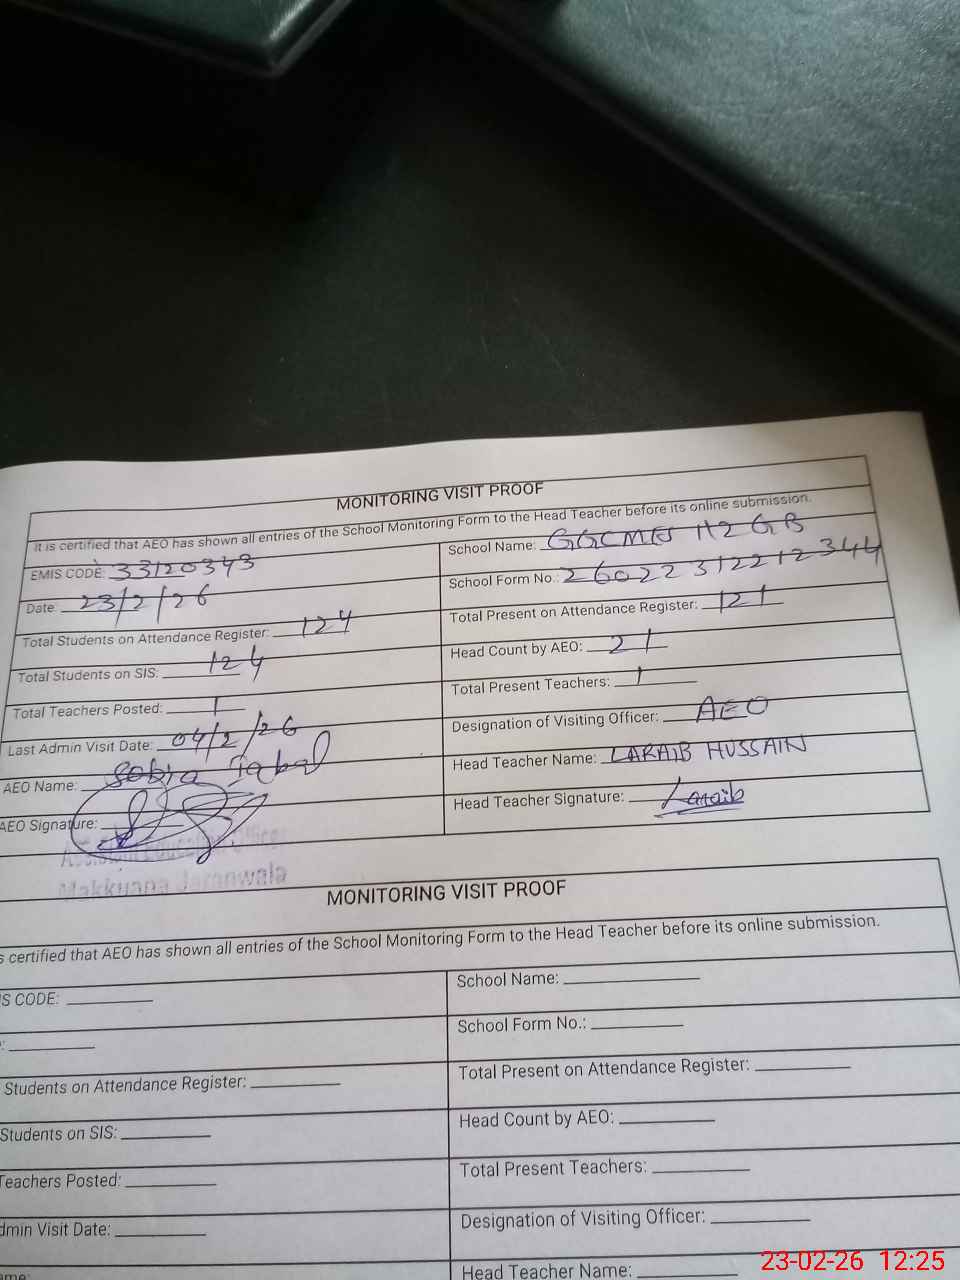 MONITORING VISIT PROOF
It is certified that AEO has shown all entries of the School Monitoring Form to the Head Teacher before its online submission.
EMIS CODE: 33120343
School Name: GGCMES 112 GB
Date: 23/2/26
School Form No.: 26022312212344
Total Students on Attendance Register: 124
Total Present on Attendance Register: 121
Total Students on SIS: 124
Head Count by AEO: 21
Total Teachers Posted: 1
Total Present Teachers: 1
Last Admin Visit Date: 04/2/26
Designation of Visiting Officer: AEO
AEO Name: Sobia iqbal
Head Teacher Name: LARAIB HUSSAIN
AEO Signature:
Head Teacher Signature: Laraib
Assistant Education Officer
Makkuana Jaranwala
MONITORING VISIT PROOF
s certified that AEO has shown all entries of the School Monitoring Form to the Head Teacher before its online submission.
IS CODE:
School Name:
:
School Form No.:
Students on Attendance Register:
Total Present on Attendance Register:
Students on SIS:
Head Count by AEO:
Teachers Posted:
Total Present Teachers:
dmin Visit Date:
Designation of Visiting Officer:
ame:
Head Teacher Name:
23-02-26 12:25